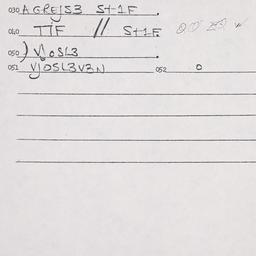 030 AGREJS3 St1F.
040 TTF // St1F.
050 ) VJOSL3
051 VJOSL3V3N 052 0